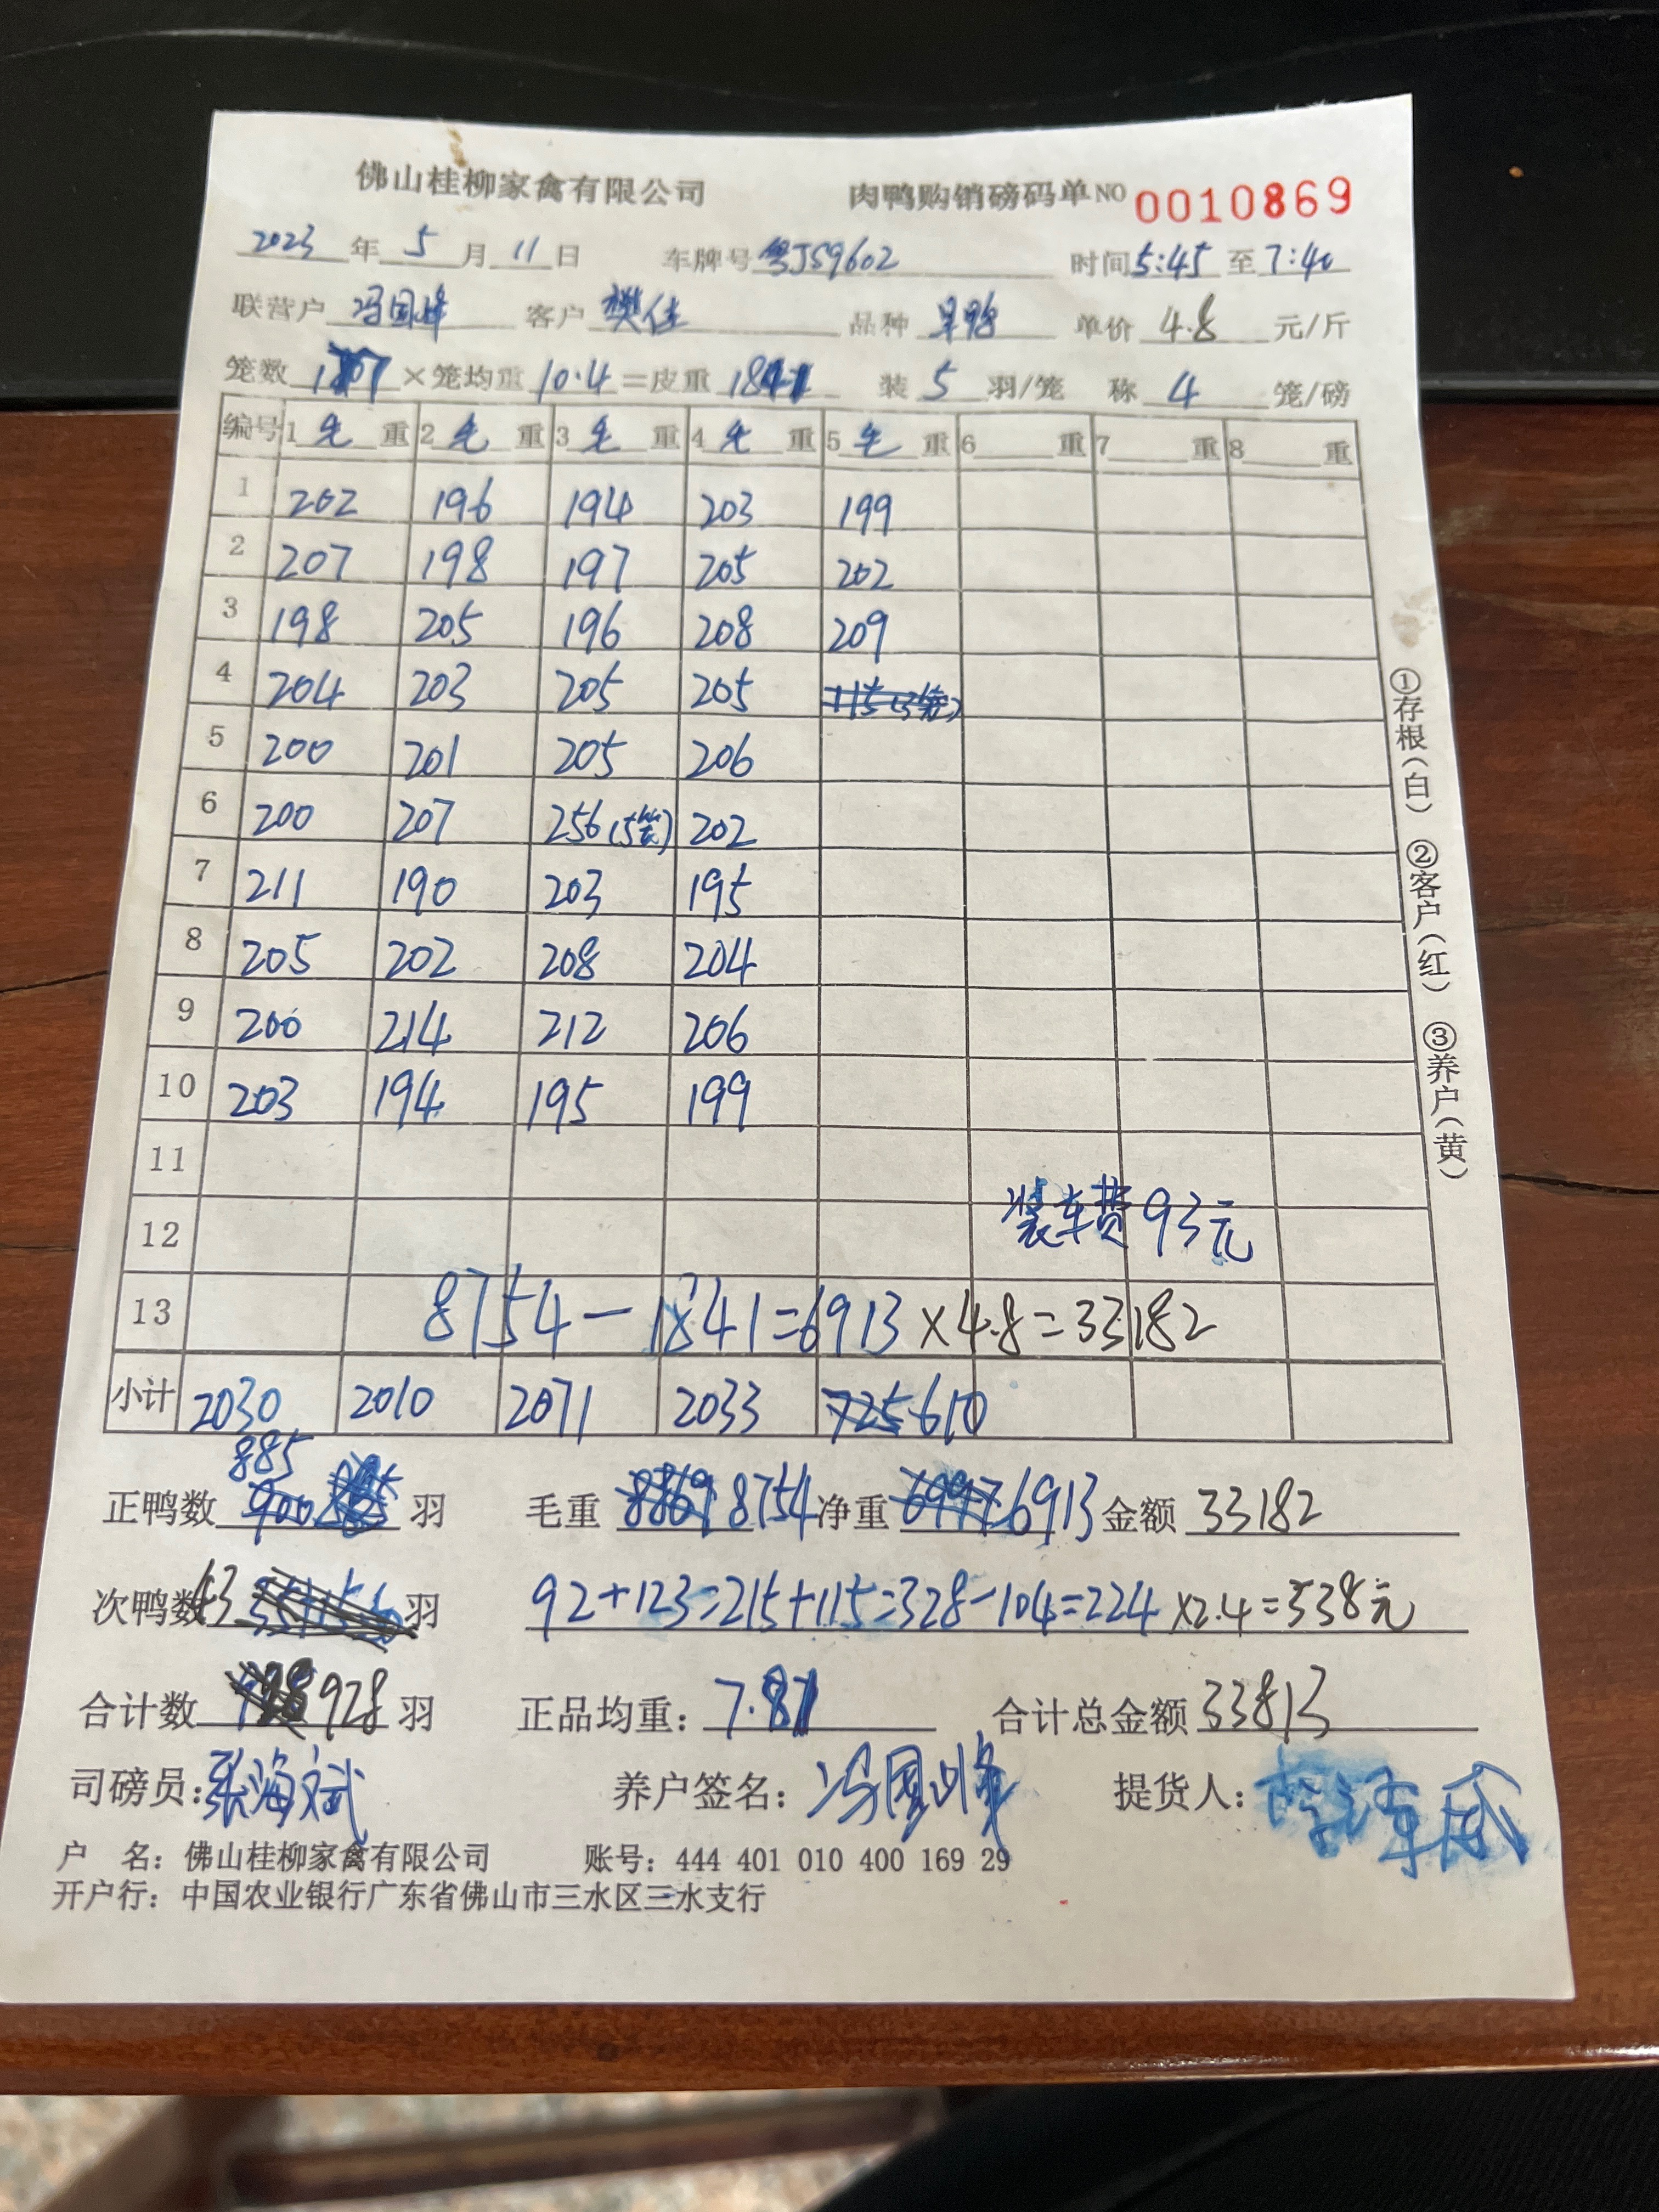 佛山桂柳家禽有限公司 肉鸭购销磅码单 NO 0010869
2023 年 5 月 11 日 车牌号 粤JS9602 时间 5:45 至 7:40
联营户 冯国峰 客户 樊佳 品种 单价 4.8 元/斤
笼数 177 ×笼均重 10.4 =皮重 1841 装 5 羽/笼 称 4 笼/磅
编号 1 毛 重 2 毛 重 3 毛 重 4 毛 重 5 毛 重 6 重 7 重 8 重
1 202 196 194 203 199
2 207 198 197 205 202
3 198 205 196 208 209
4 204 203 205 205 115(3笼)
5 200 201 205 206
6 200 207 256(5笼) 202
7 211 190 203 195
8 205 202 208 204
9 200 214 212 206
10 203 194 195 199
11
12 装车费 93元
13 8754-1841=6913×4.8=33182
小计 2030 2010 2071 2033 725 610
885
正鸭数 900 羽 毛重 8869 8754 净重 6913 金额 33182
次鸭数 43 羽 92+123=215+115=328-104=224×2.4=538元
合计数 928 羽 正品均重: 7.81 合计总金额 33813
司磅员: 张海斌 养户签名: 冯国峰 提货人:
户 名: 佛山桂柳家禽有限公司 账号: 444 401 010 400 169 29
开户行: 中国农业银行广东省佛山市三水区三水支行
①存根(白) ②客户(红) ③养户(黄)